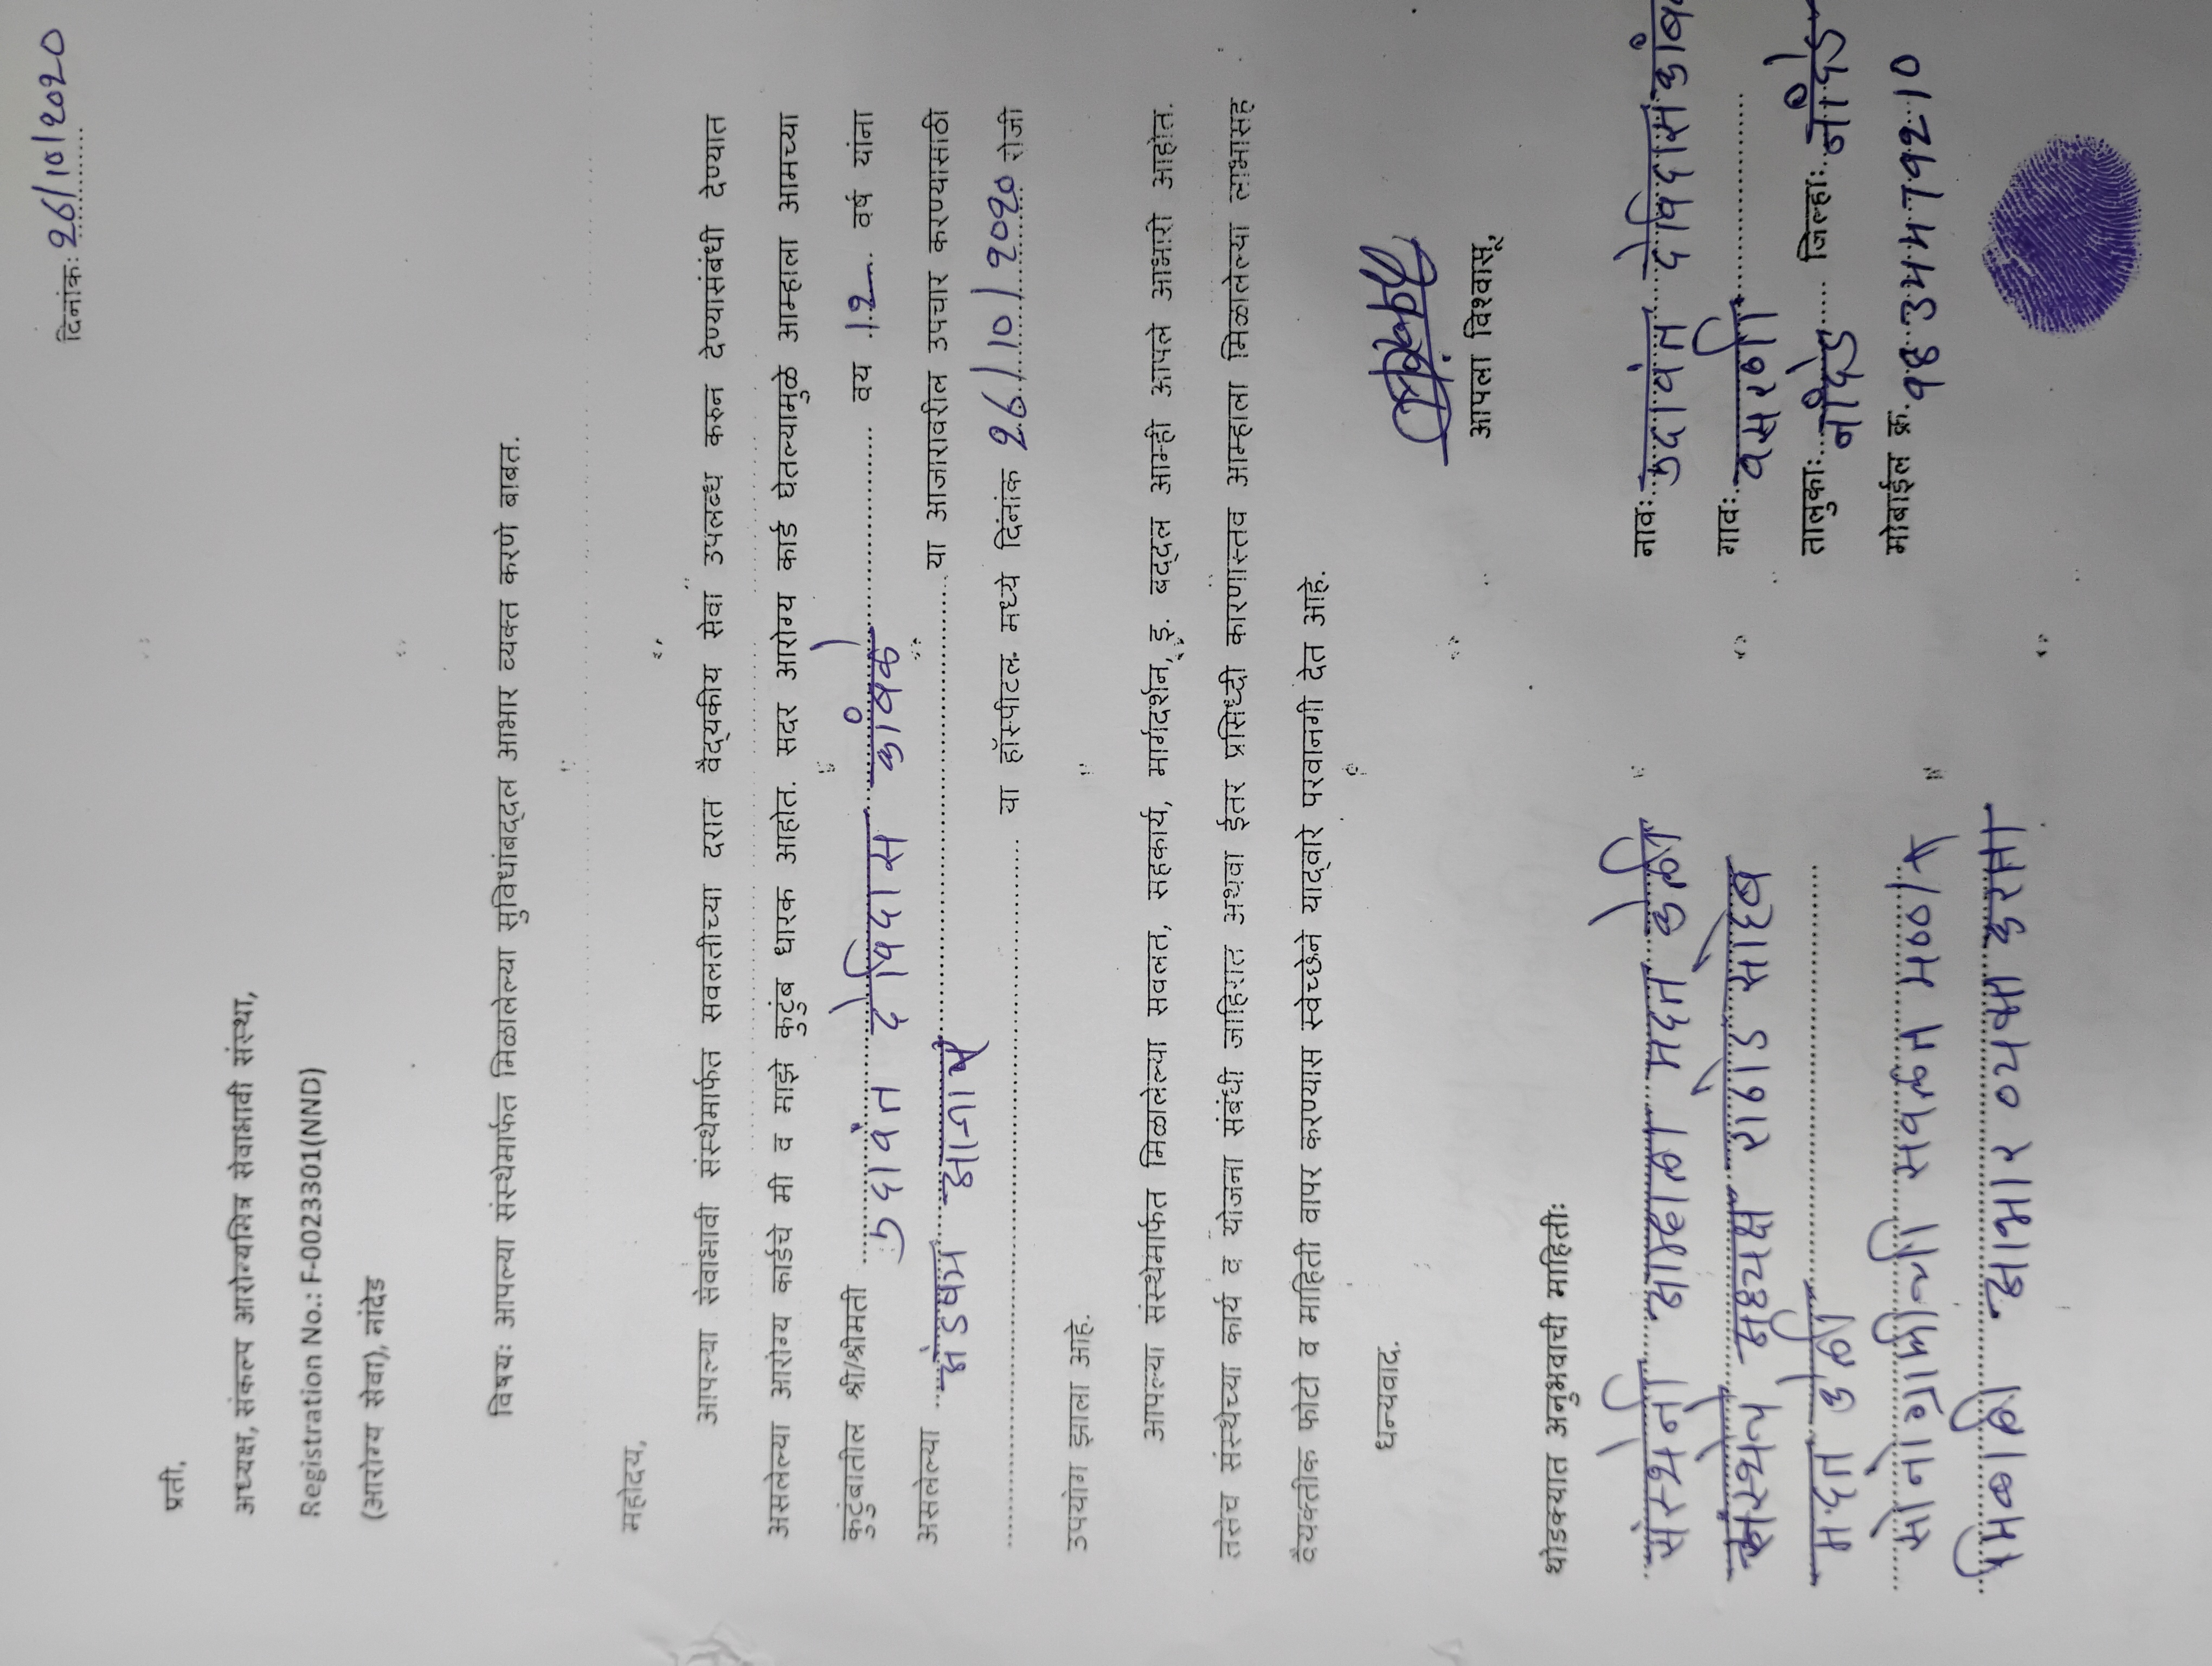 दिनांक: 26/10/2020
प्रती,
अध्यक्ष, संकल्प आरोग्यमित्र सेवाभावी संस्था,
Registration No.: F-0023301(NND)
(आरोग्य सेवा), नांदेड
विषय: आपल्या संस्थेमार्फत मिळालेल्या सुविधांबद्दल आभार व्यक्त करणे बाबत.
महोदय,
आपल्या सेवाभावी संस्थेमार्फत सवलतीच्या दरात वैद्यकीय सेवा उपलब्ध करुन देण्यासंबंधी देण्यात
असलेल्या आरोग्य कार्डचे मी व माझे कुटुंब धारक आहोत. सदर आरोग्य कार्ड घेतल्यामुळे आम्हाला आमच्या
कुटुंबातील श्री/श्रीमती देविदास कांबळे वय 12 वर्ष यांना
असलेल्या या आजारावरील उपचार करण्यासाठी
या हॉस्पीटल मध्ये दिनांक 26/10/2020 रोजी
उपयोग झाला आहे.
आपल्या संस्थेमार्फत मिळालेल्या सवलत, सहकार्य, मार्गदर्शन, इ. बद्दल आम्ही आपले आभारी आहोत.
तसेच संस्थेच्या कार्य व योजना संबंधी जाहिरात अथवा ईतर प्रसिध्दी कारणास्तव आम्हाला मिळालेल्या लाभासह
वैयक्तीक फोटो व माहिती वापर करण्यास स्वेच्छेने याद्वारे परवानगी देत आहे.
धन्यवाद.
आपला विश्वासू,
थोडक्यात अनुभवाची माहिती:
संस्थेनी आम्हाला मदत केली
संस्थेचे अध्यक्ष राठोड साहेब
मदत केली
सोनोग्राफीची सवलत
मिळाली आभार व्यक्त करता
नाव: देविदास कांब
गाव: वसरणी
तालुका: नांदेड जिल्हा: नांदेड
मोबाईल क्र.